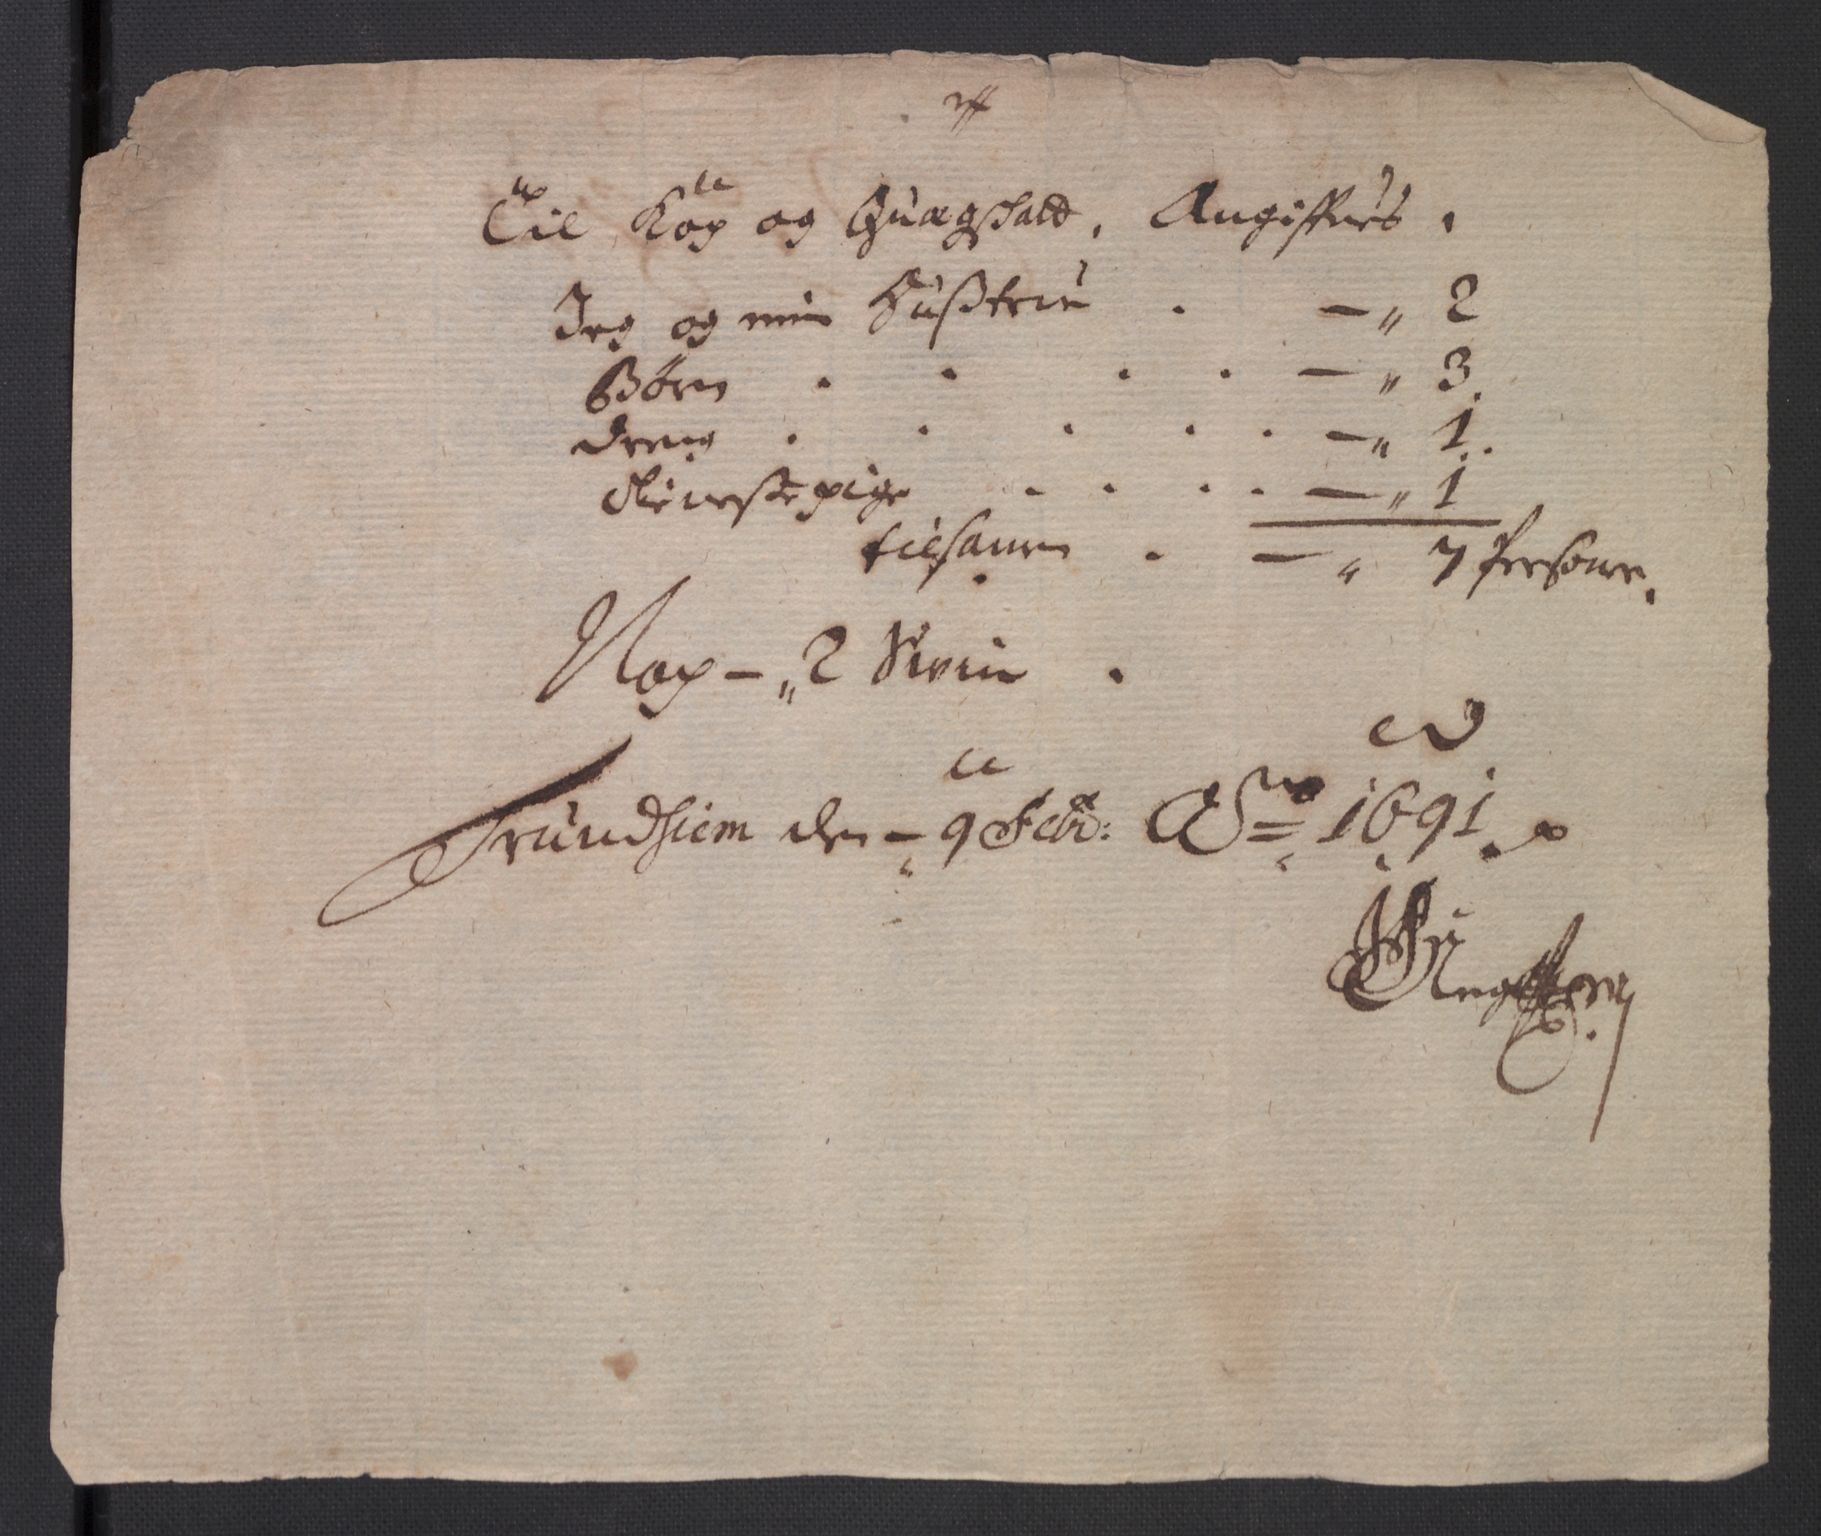 Til Kop og Quægschatt, Angiffves.
Jeg og min Hüsstrüe . — „ 2
Børn . . . . — „ 3.
dreng . . . . . — „ 1.
tienestepige . . . . — „ 1
tilsamen . — „ 7 Persone.
Nop — „ 2 Sviin .
Trundhiem den — 9 Febr: Ao = 1691.